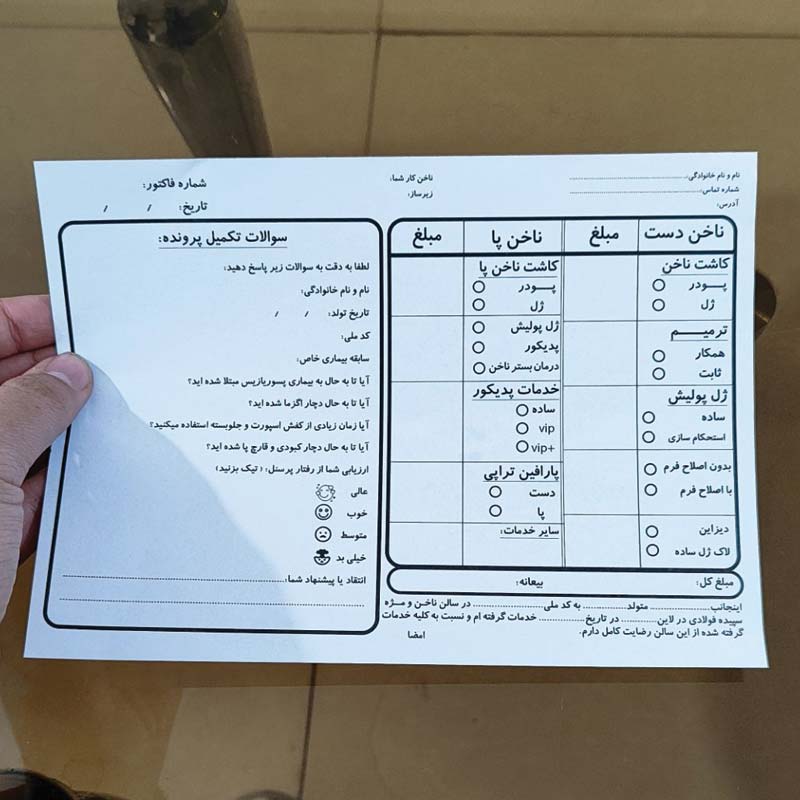 نام و نام خانوادگی:
شماره تماس:
آدرس:
ناخن کار شما:
زیرساز:
شماره فاکتور:
تاریخ: / /
ناخن دست
مبلغ
ناخن پا
مبلغ
کاشت ناخن
پــودر
ژل
ترمیـــم
همکار
ثابت
ژل پولیش
ساده
استحکام سازی
بدون اصلاح فرم
با اصلاح فرم
دیزاین
لاک ژل ساده
کاشت ناخن پا
پــودر
ژل
ژل پولیش
پدیکور
درمان بستر ناخن
خدمات پدیکور
ساده
vip
vip+
پارافین تراپی
دست
پا
سایر خدمات:
مبلغ کل:
بیعانه:
اینجانب.................... متولد.................... به کد ملی.................... در سالن ناخـن و مـژه
سپیده فولادی در لاین.................... در تاریخ.................... خدمات گرفته ام و نسبت به کلیه خدمات
گرفته شده از این سالن رضایت کامل دارم.
امضا
سوالات تکمیل پرونده:
لطفا به دقت به سوالات زیر پاسخ دهید:
نام و نام خانوادگی:
تاریخ تولد: / /
کد ملی:
سابقه بیماری خاص:
آیا تا به حال به بیماری پسوریازیس مبتلا شده اید؟
آیا تا به حال دچار اگزما شده اید؟
آیا زمان زیادی از کفش اسپورت و جلوبسته استفاده میکنید؟
آیا تا به حال دچار کبودی و قارچ پا شده اید؟
ارزیابی شما از رفتار پرسنل: (تیک بزنید)
عالی
خوب
متوسط
خیلی بد
انتقاد یا پیشنهاد شما: